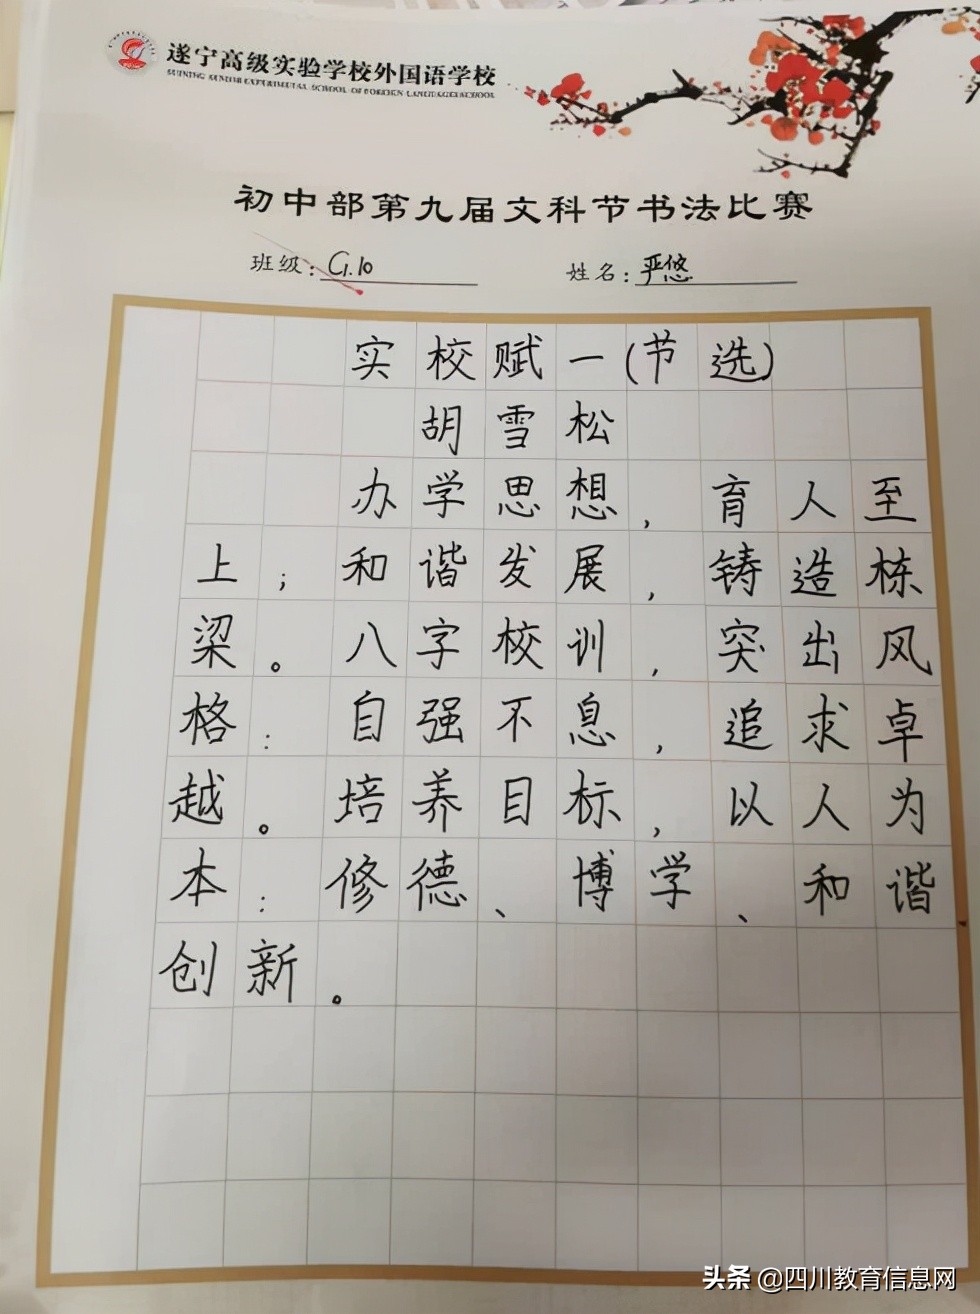 遂宁高级实验学校外国语学校
SUINING SENIOR EXPERIMENTAL SCHOOL OF FOREIGN LANGUAGES SCHOOL
初中部第九届文科节书法比赛
班级：G.10 姓名：严悠
实校赋一(节选)
胡雪松
办学思想，育人至
上；和谐发展，铸造栋
梁。八字校训，突出风
格：自强不息，追求卓
越。培养目标，以人为
本：修德、博学、和谐
创新。
头条 @四川教育信息网